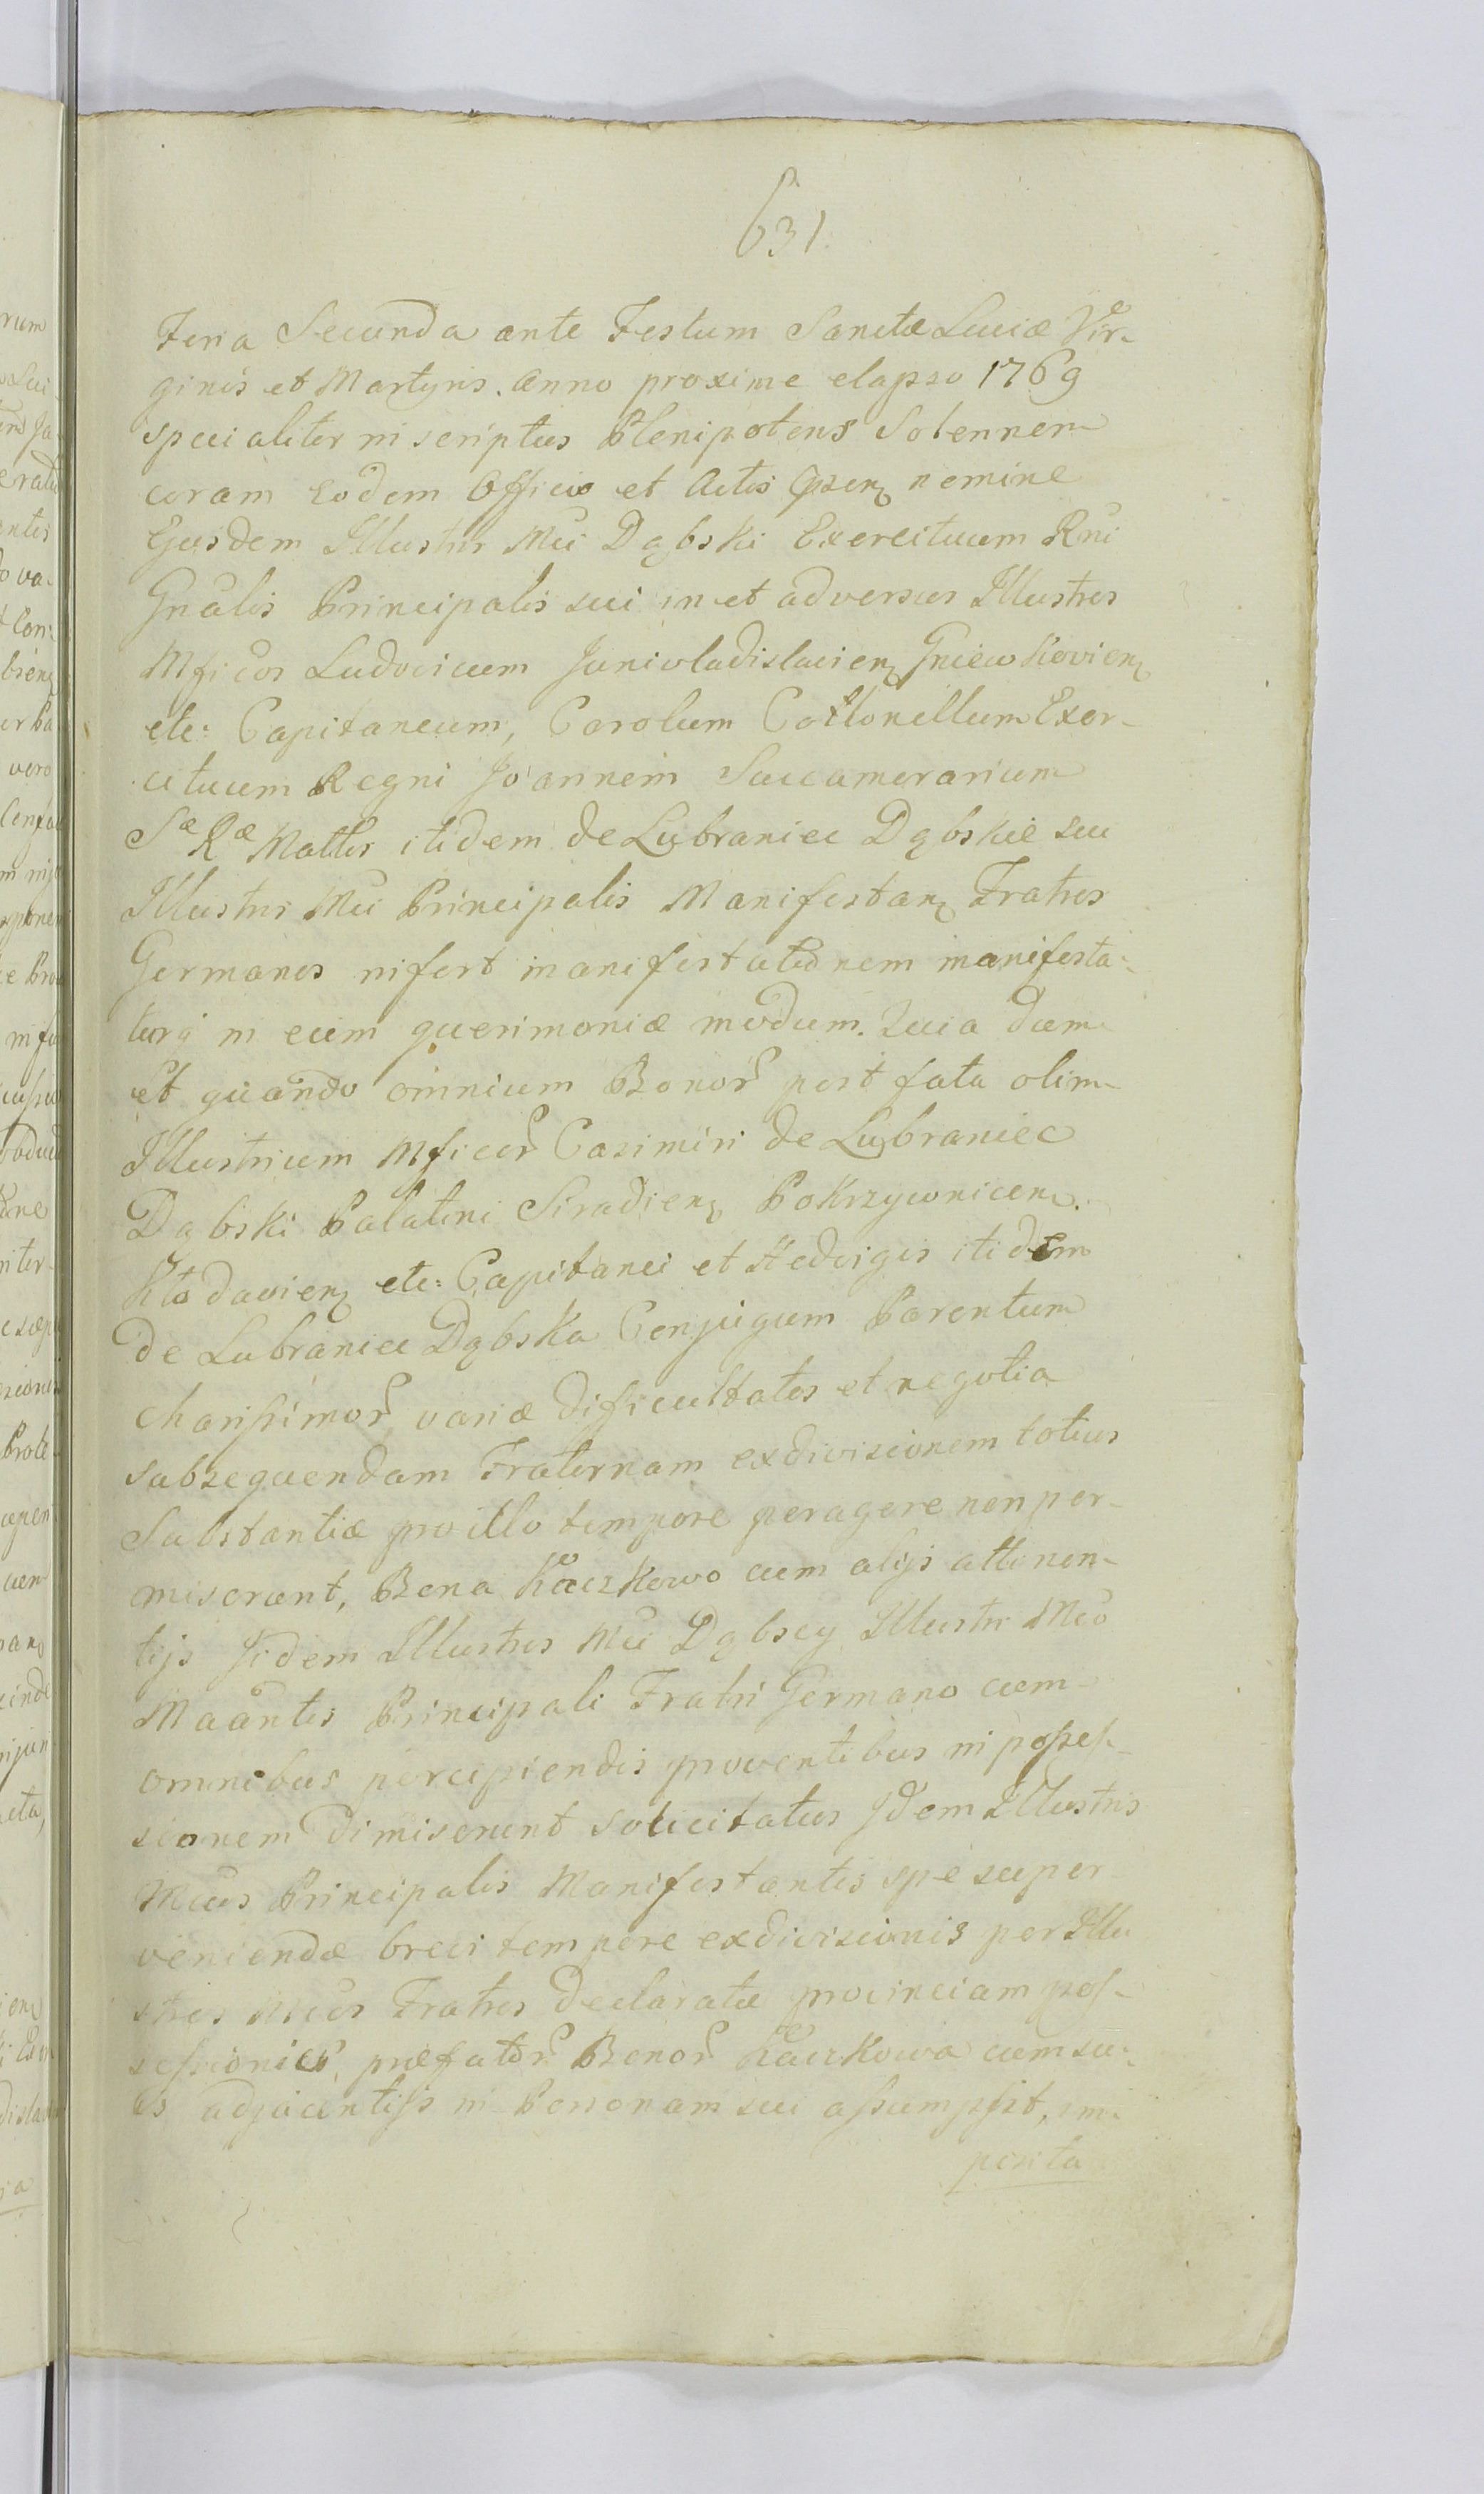 631
Feria Secunda ante Festum Sanctæ Luciæ Vir-
ginis et Martyris. Anno proxime elapso 1769
specialiter inscriptus Plenipotens Solennem
coram eodem Officio et Actis psen nomine
Ejusdem Illustris Mci Dąbski Exercituum Rni
Gnalis Principalis sui in et adversus Illustres
Mficos Ludovicum Junivladislavien Gniewkovien
etc: Capitaneum, Carolum Collonellum Exer-
cituum Regni Joannem Succamerarium
Sæ Ræ Mattis itidem de Lubraniec Dąbskie sui
Illustris Mci Principalis Manifestan Fratres
Germanos infert manifestationem manifesta-
turq in eum querimoniæ modum. Quia dum
et quando omnium Bonor post fata olim
Illustrium Mficor Casimiri de Lubraniec
Dąbski Palatini Siradien Pokrzywnicen
Kłodavien etc: Capitanei et Hedvigis itidem
de Lubraniec Dąbska Conjugum Parentum
charissimor, variæ dificultates et negotia
subsequendam Fraternam exdivisionem totius
Substantiæ pro illo tempore peragere non per-
miserunt, Bona Kaczkowo cum alijs attinen-
tijs Iidem Illustres Mci Dąbscy Illustri Mco
Maantis Principali Fratri Germano cum
omnibus percipiendis proventibus in posses-
sionem dimiserunt solicitatus Idem Illustris
Mcus Principalis Manifestantis spe super
veniendæ brevi tempore exdivisionis per Illu
stres Mcos Fratres declaratæ provinciam pos-
sessionis, præfator Bonor Kaczkowa cum su-
is adjacentijs in Personam sui assumpsit, im
posita